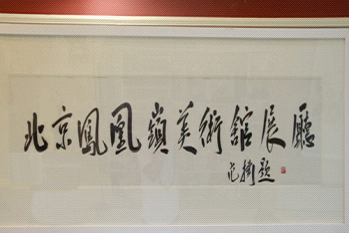 北京鳳凰嶺美術館展廳
范衡題